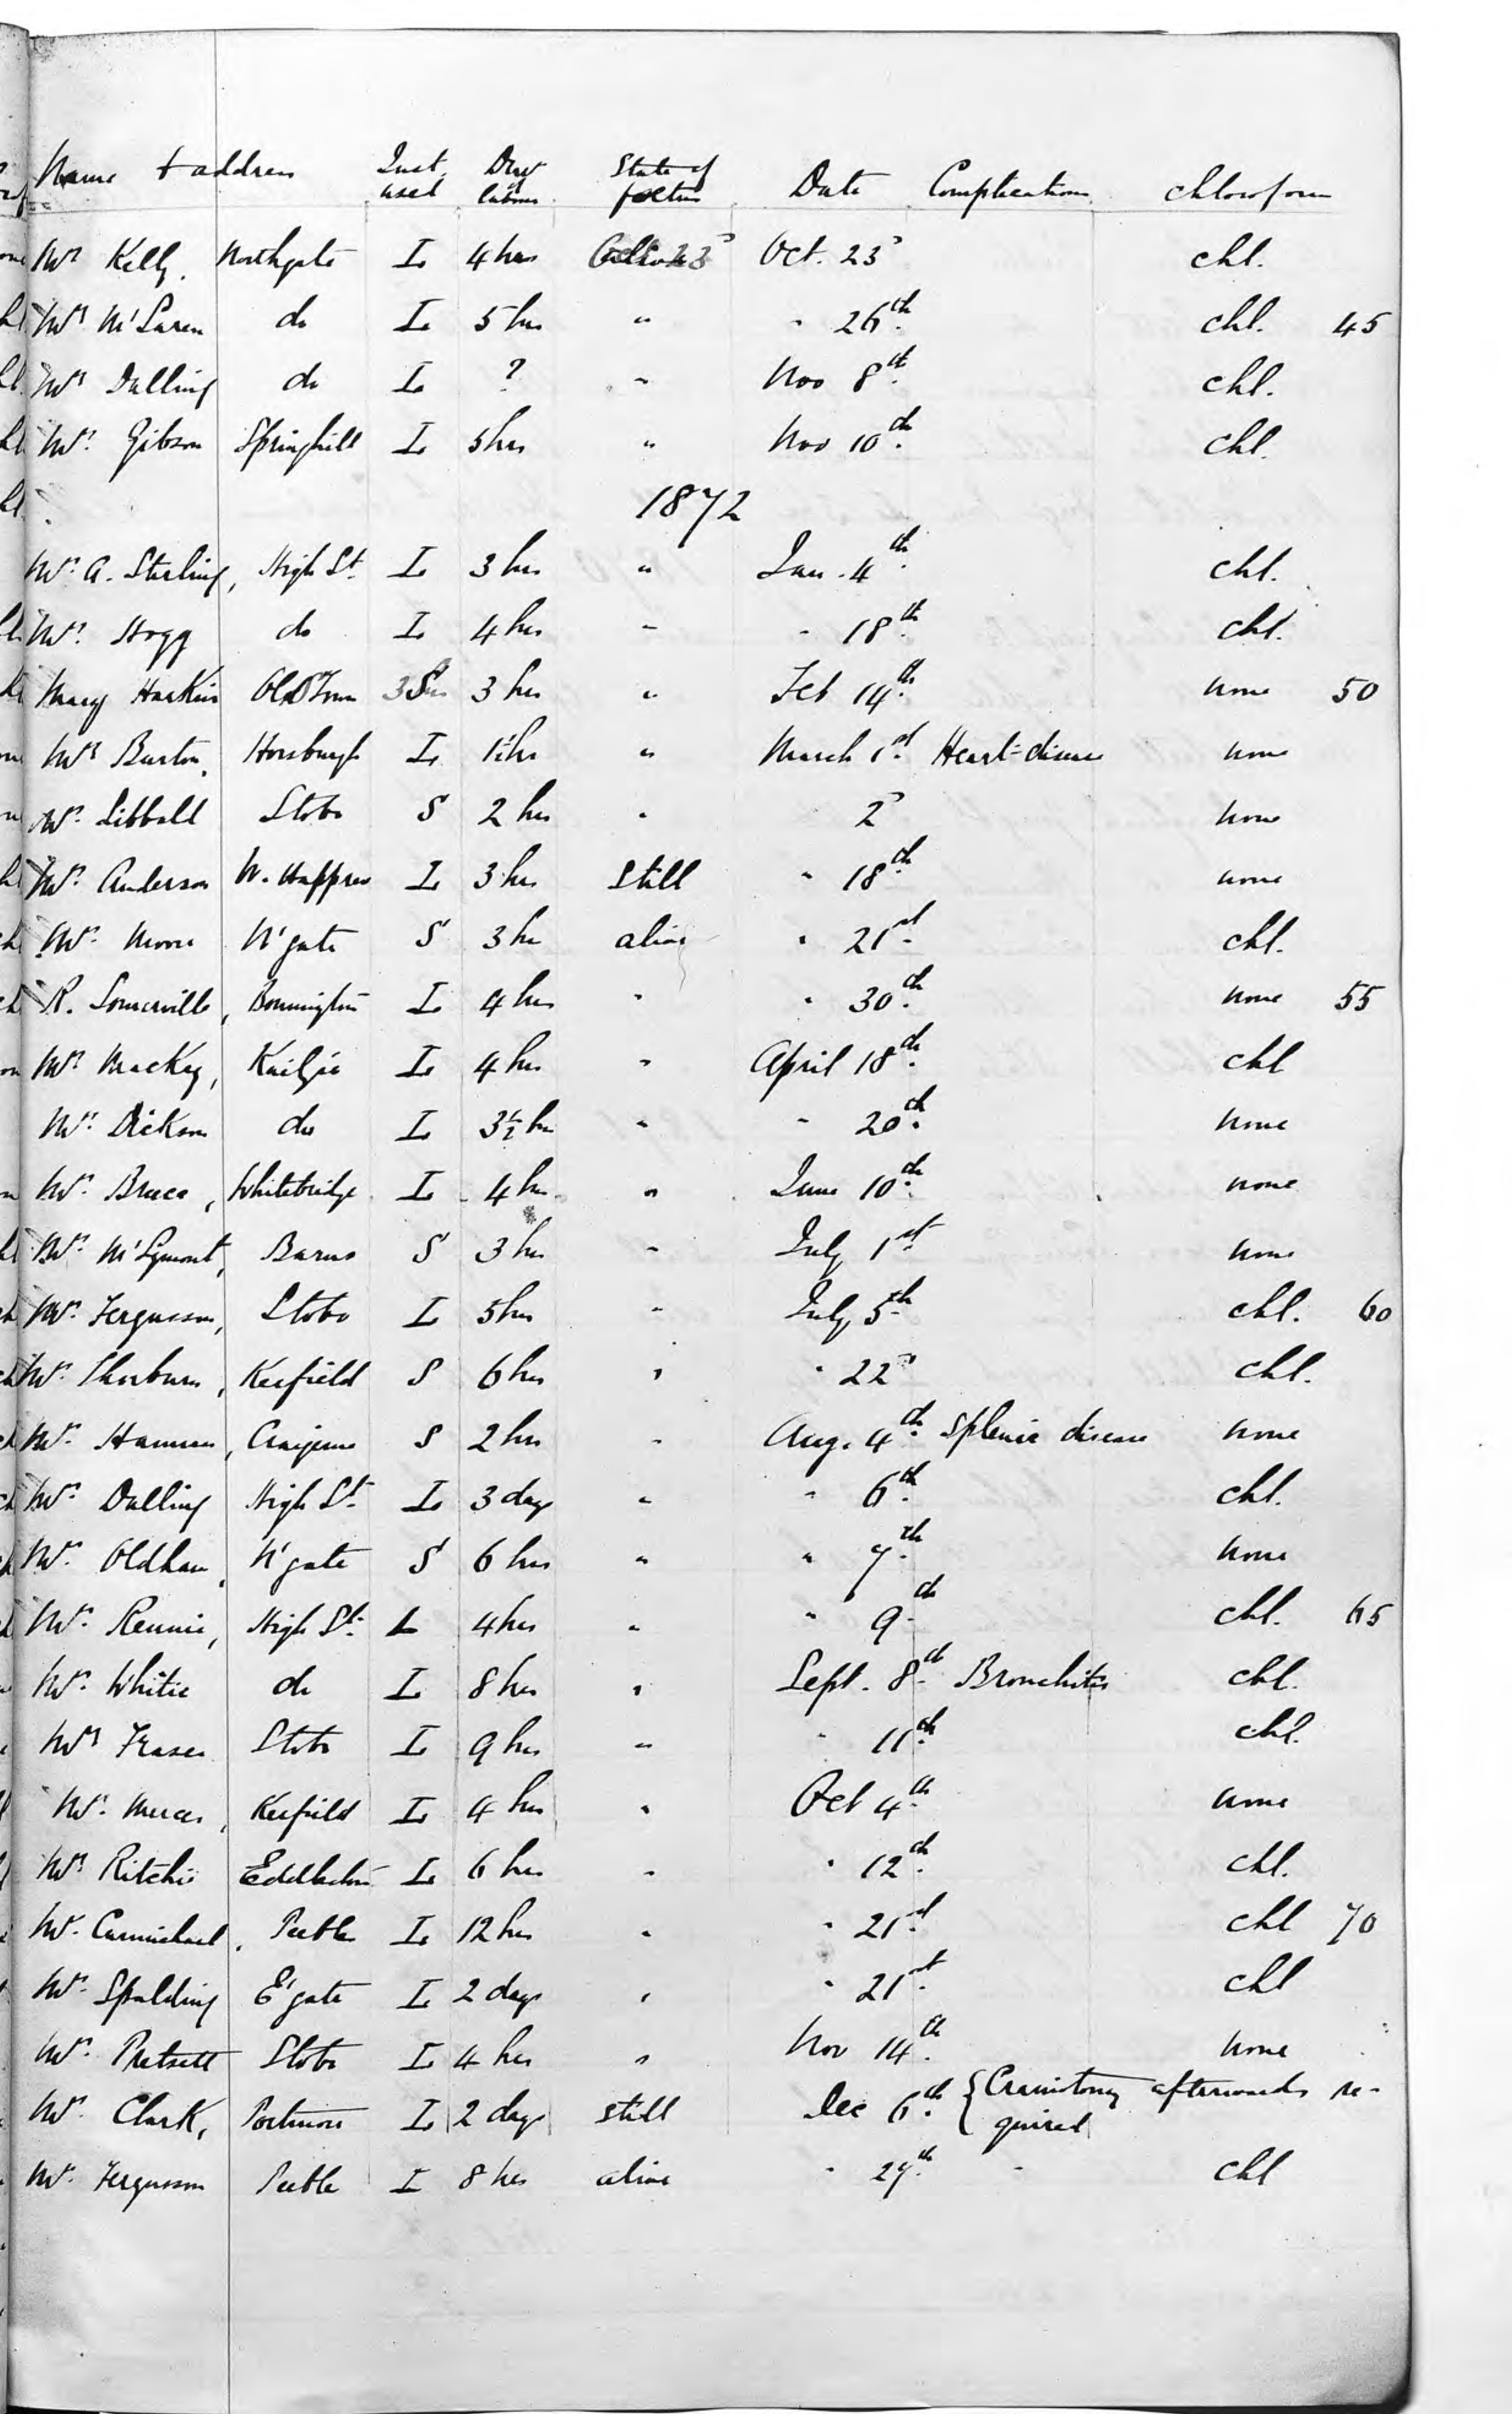 Name & address Inst. used Dur of labour State of foetus Date Complications Chloroform
Mrs Kelly. Northgate L 4 hrs Oct. 23d chl.
Mrs M'Laren do L 5 hrs " " 26th chl. 45
Mrs Dalling do L ? " Nov 8th chl.
Mrs Gibson Springhill L 5 hrs " Nov 10th chl.
1872
Mrs A. Sterling, High St. L 3 hrs " Jan. 4th chl.
Mrs Hogg do L 4 hrs " " 18th chl.
Mary Harkin Old Town 3 hrs " Feb 14th none 50
Mrs Burton, Horsburgh L 1½ hr " March 1st Heart-disease none
Mrs Sibbald Stobo S 2 hrs " 2d none
Mrs Anderson W. Happrew L 3 hrs Still " 18th none
Mrs Moore N'gate S 3 hr alive " 21st chl.
R. Somerville, Bonnington L 4 hrs " " 30th none 55
Mrs Mackay, Kailzie L 4 hrs " April 18th chl
Mrs Dickson do L 3½ hr " " 20th none
Mrs Bruce, Whitebridge L 4 hrs " June 10th none
Mrs M'Lymont, Barns S 3 hrs " July 1st none
Mrs Fergusson, Stobo L 5 hrs " July 5th chl. 60
Mrs Thorburn, Kerfield S 6 hrs " " 22d chl.
Mrs Craigerne S 2 hrs " Aug. 4th Splenic disease none
Mrs Dalling High St. L 3 days " " 6th chl.
Mrs Oldham, N'gate S 6 hrs " " 7th none
Mrs Rennie, High St. L 4 hrs " " 9th chl. 65
Mrs Whitie do L 8 hrs " Sept. 8th Bronchitis chl.
Mrs Fraser Stobo L 9 hrs " " 11th chl.
Mrs Mercer, Kerfield L 4 hrs " Oct 4th none
Mrs Ritchie Eddleston L 6 hrs " " 12th chl.
Mrs Carmichael, Peebles L 12 hrs " " 21st chl 70
Mrs Spalding E'gate L 2 days " " 21st chl
Mrs Stobo L 4 hrs " Nov 14th none
Mrs Clark, Portmore L 2 days still Dec 6th {Craniotomy afterwards re-
quired
Mrs Fergusson Peebles L 8 hrs alive " 27th " chl